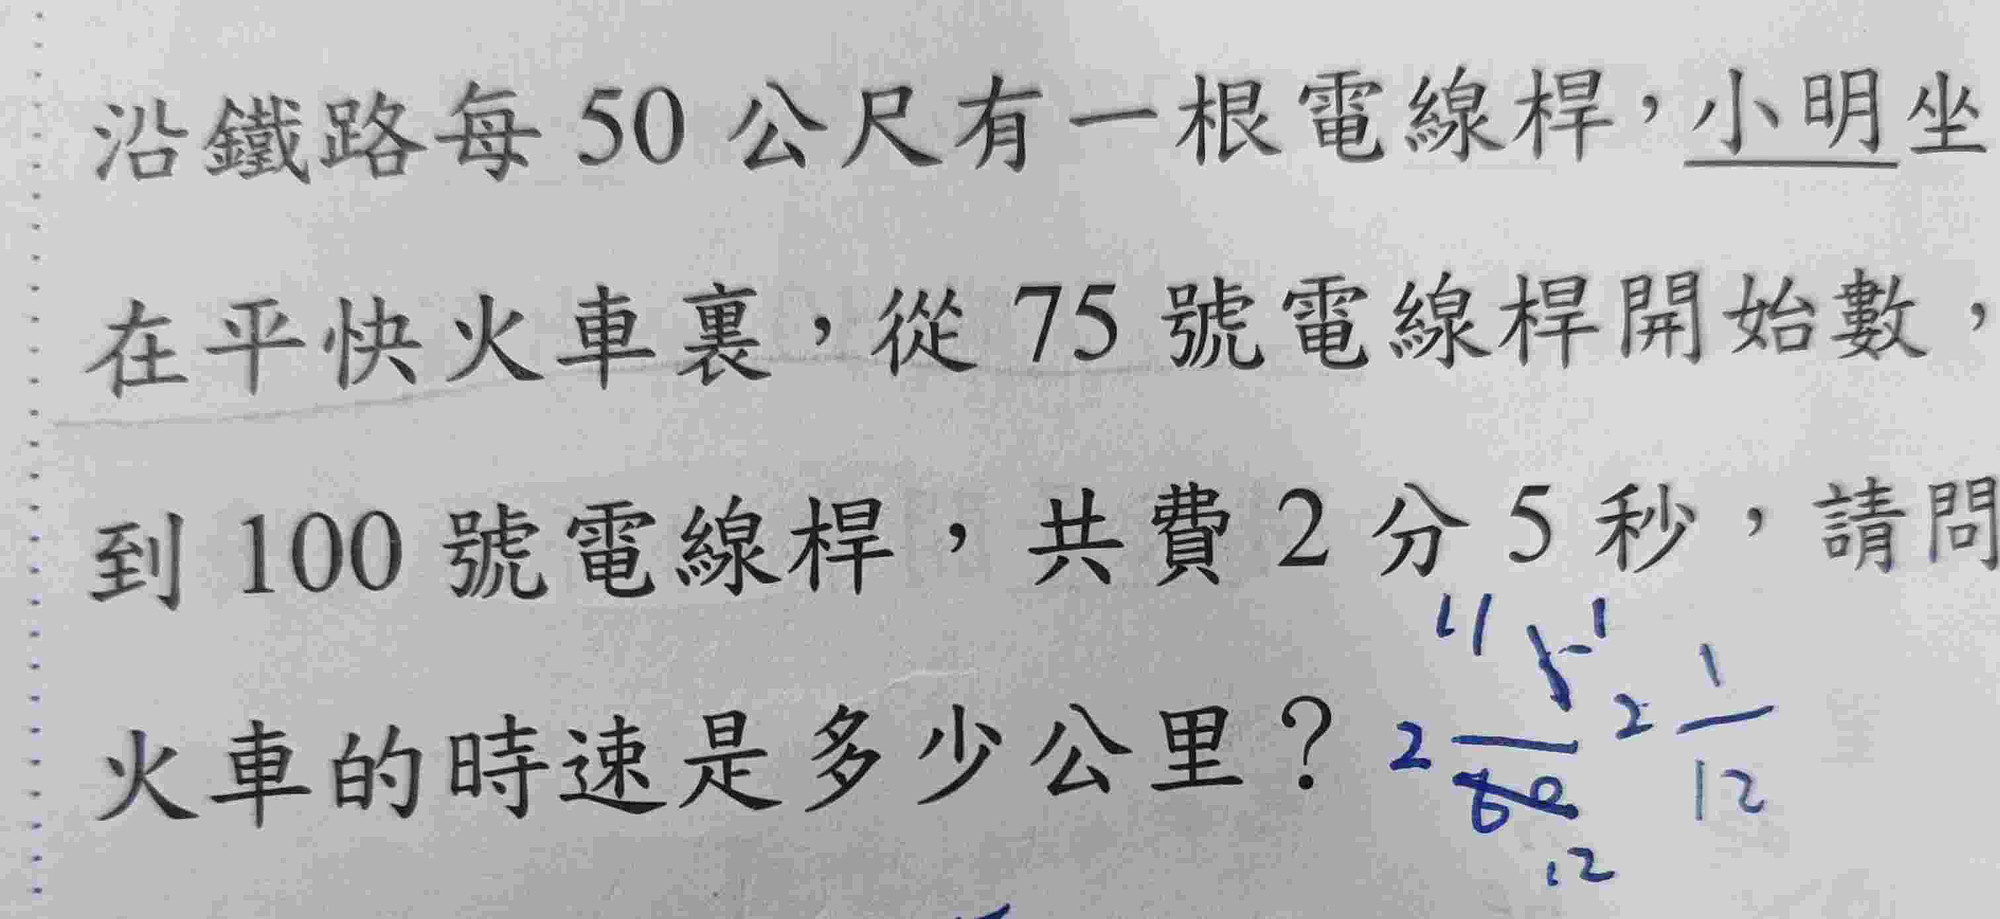 沿鐵路每 50 公尺有一根電線桿，小明坐
在平快火車裏，從 75 號電線桿開始數，
到 100 號電線桿，共費 2 分 5 秒，請問
火車的時速是多少公里？
2 5/60 1 12
2 1/12